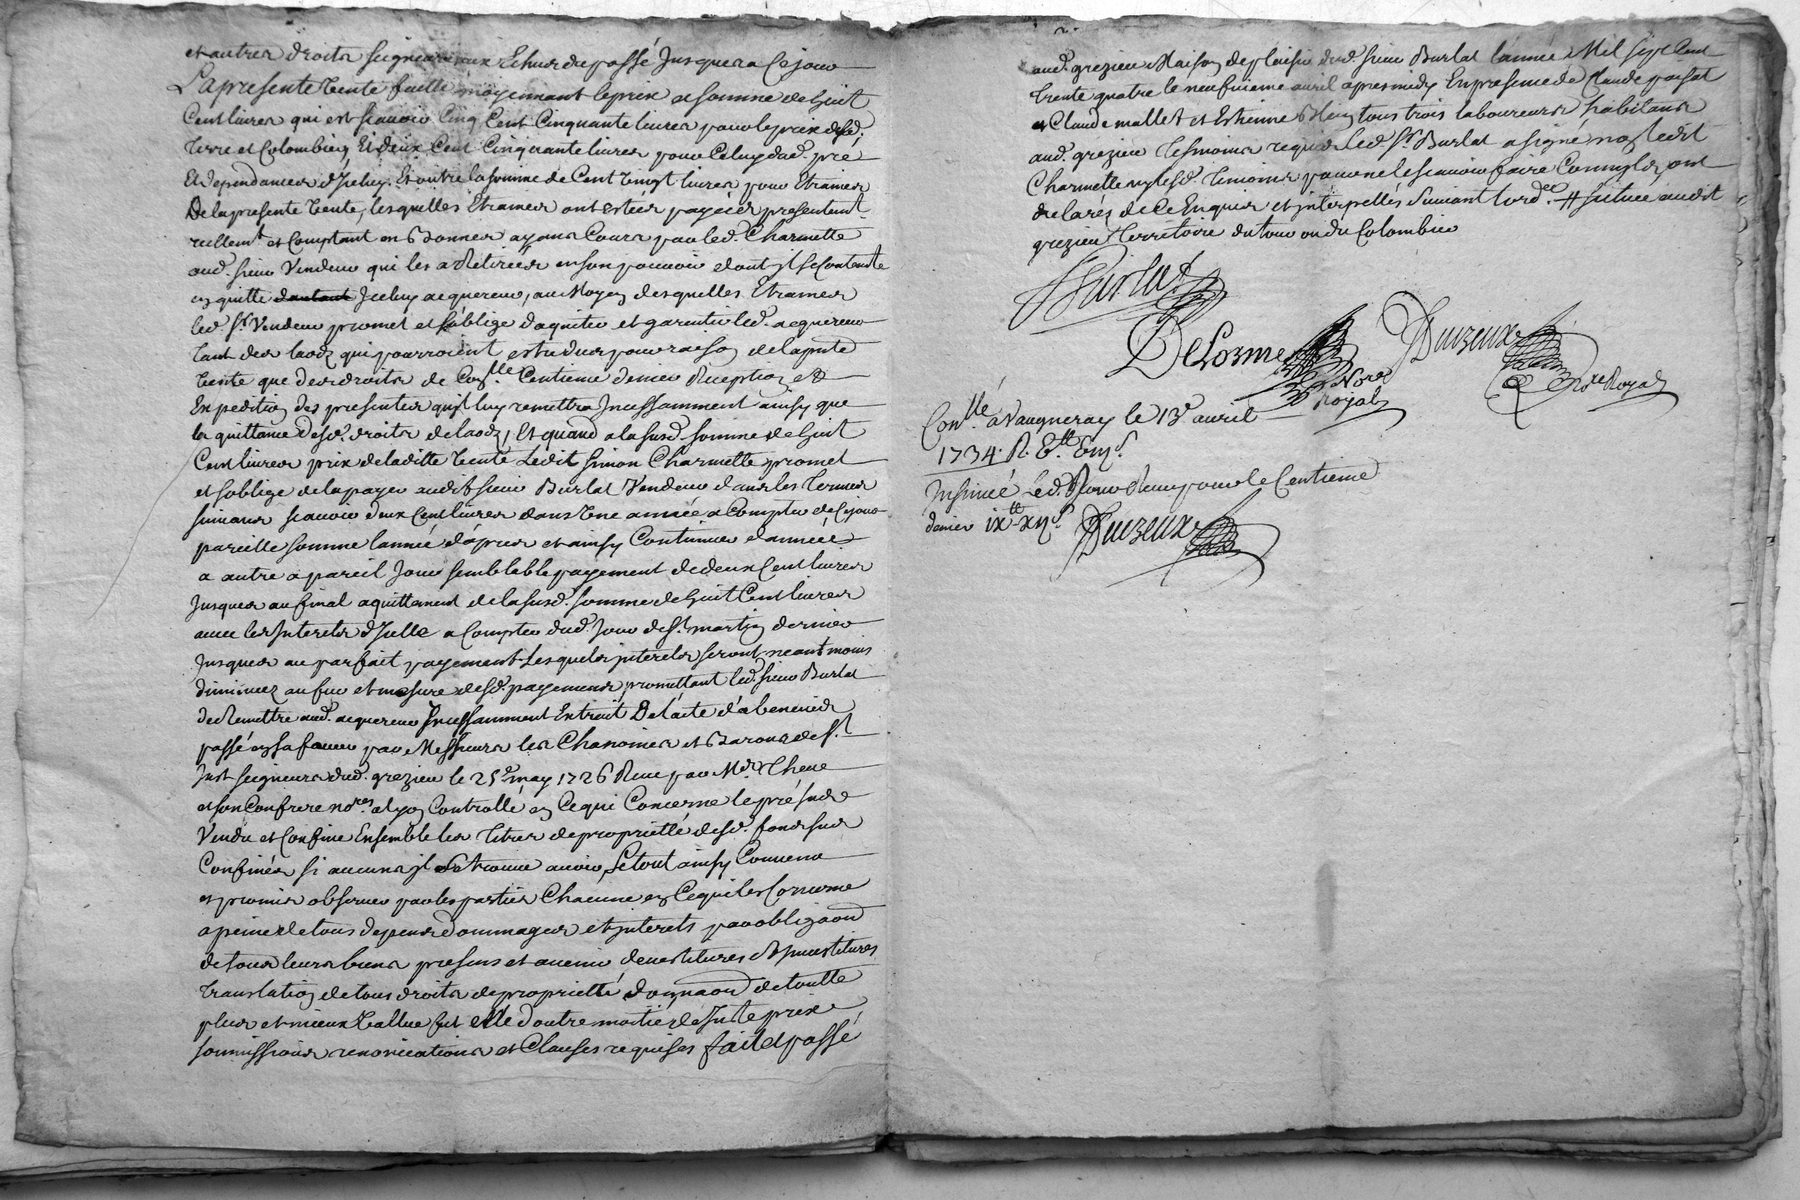 et autres droits seigneuriaux Echus du passé Jusques a Ce jour
La presente Vente faitte moyennant le prix et somme de huit
Cent livres qui est scavoir Cinq Cent Cinquante livres pour le prix desd.
terre et Colombier, Et deux Cent Cinquante livres pour Celuy dud. pré
Et dependances d'Iceluy. Et outre la somme de Cent vingt livres pour Etraines
De la presente Vente, lesquelles Etraines ont estées payées presentemt
reellemt et Comptant en Bonnes ayans Cours par led. Charmette
aud. sieur Vendeur qui les a Retirées en son pouvoir dont il se Contente
en quitte dautant Iceluy acquereur, au Moyen desquelles Etraines
led. Sr Vendeur promet et s'oblige d'aquiter et garentir led. acquereur
tant des laods qui pourroient estre dus pour raison de la pnte
Vente que des droits de Conlle Centieme denier Reception et
Expedition des presentes qu'il luy remettra Incessamment ainsy que
la quittance desd. droits de laods, Et quand a la susd. somme de huit
Cent livres prix de laditte Vente Ledit Simon Charmette promet
et s'oblige de la payer audit sieur Burlat Vendeur dans les Termes
suivans scavoir deux Cent livres dans Une année a Compter de Ce jour
pareille somme l'année d'après et ainsy Continuer d'année
a autre a pareil Jour semblable payement de deux Cent livres
Jusques au final aquittement de la susd. somme de huit Cent livres
avec les Interets d'Icelle a Compter dud. Jour de St martin dernier
Jusques au parfait payement Lesquels interets seront neantmoins
diminuez au fur et mesure desd. payemens, promettant led. sieur Burlat
de Remettre aud. acquereur Incessamment Extrait De l'acte d'abenevis
passé en sa faveur par Messieurs les Chanoines et Barons de St
Just seigneurs dud. grezieu le 25e may 1726 Reçu par Me
et son Confrere nores a Lyon Controllé en Ce qui Concerne le pré sus
Vendu et Confiné Ensemble les Titres de proprietté desd. fonds sus
Confinés si aucuns il se trouve avoir, Le tout ainsy Convenu
et promis observer par les parties Chacune en Ce qui les Concerne
a peine de tous depens dommages et interets par obligaon
de tous leurs biens presens et avenir devestitures et Investitures
Translation de tous droits de proprietté donnaon de toutte
plus et mieux Vallue fut elle d'outre moitié de Juste prix
soumissions renonciations et Clauses requises fait et passé
aud. grezieu Maison de plaisir dud. sieur Burlat l'année Mil sept Cent
trente quatre le neufvieme avril apres midy En presence de Claude
et Claude mallet et Estienne tous trois laboureurs habitans
aud. grezieu Tesmoins requis Led. Sr Burlat a signé non ledit
Charmette ny lesd. temoins pour ne le scavoir faire Comme ils ont
declarés de Ce Enquis et interpellés suivant l'ord.ce # située audit
grezieu Territoire du tour ou du Colombier
Burlat
DeLorme
Nore
Royal
Duizeux
Nore Royal
Conlle a Vaugneray le 13e avril
1734. R.
Insinué Led. Jour Reçu pour le Centieme
denier ixtt xijs Duizeux